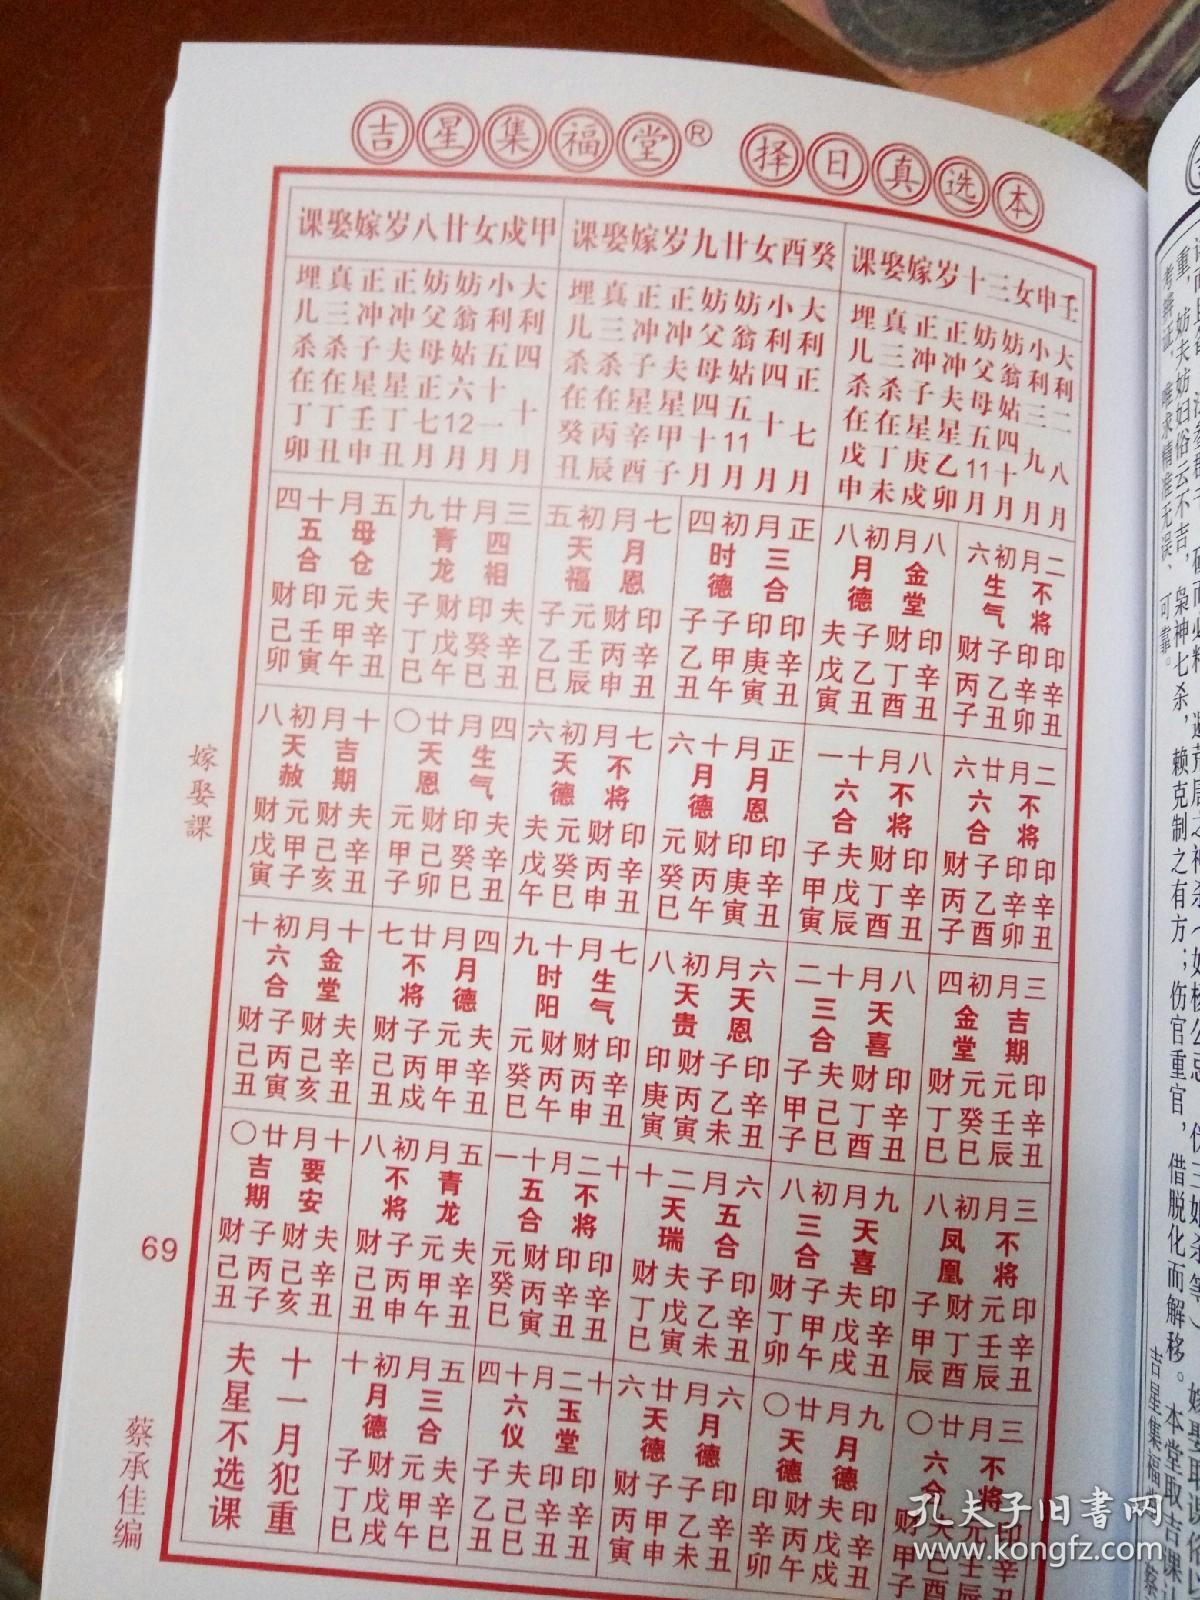 吉星集福堂® 择日真选本
壬申女三十岁嫁娶课
大利二八月
小利三九月
妨翁姑四十月
妨父母五11月
正冲夫星乙卯
正冲子星庚戌
真三杀在丁未
埋儿杀在戊申
二月初六
不将
生气
印辛丑
印辛卯
子乙丑
财丙子
八月初八
金堂
月德
印辛丑
财丁酉
子乙丑
夫戊寅
二月廿六
不将
六合
印辛丑
印辛卯
子乙酉
财丙子
八月十一
不将
六合
印辛丑
财丁酉
夫戊辰
子甲寅
三月初四
吉期
金堂
印辛丑
元壬辰
元癸巳
财丁巳
八月十二
天喜
三合
印辛丑
财丁酉
夫己巳
子甲子
三月初八
不将
凤凰
印辛丑
元壬辰
财丁酉
子甲辰
九月初八
天喜
三合
印辛丑
夫戊戌
子甲午
财丁卯
三月廿〇
不将
六合
九月廿〇
月德
天德
印辛丑
夫戊戌
财丙午
印辛卯
癸酉女廿九岁嫁娶课
大利正七月
小利四十月
妨翁姑五11月
妨父母四十月
正冲夫星甲子
正冲子星辛酉
真三杀在丙辰
埋儿杀在癸丑
正月初四
三合
时德
印辛丑
印庚寅
子甲午
子乙丑
七月初五
月恩
天福
印辛丑
财丙申
元壬辰
子乙巳
正月十六
月恩
月德
印辛丑
印庚寅
财丙午
元癸巳
七月初六
不将
天德
印辛丑
财丙申
元癸巳
夫戊午
六月初八
天恩
天贵
印辛丑
子乙未
财丙寅
印庚寅
七月十九
生气
时阳
印辛丑
财丙申
财丙午
元癸巳
六月二十
五合
天瑞
印辛丑
子乙未
夫戊寅
财丁巳
十二月十一
不将
五合
印辛丑
印辛丑
财丙寅
元癸巳
六月廿六
月德
天德
印辛丑
子乙未
子甲申
财丙寅
十二月十四
玉堂
六仪
印辛丑
印辛丑
夫己巳
子乙丑
甲戌女廿八岁嫁娶课
大利四十月
小利五十一月
妨翁姑六12月
妨父母正七月
正冲夫星丁丑
正冲子星壬申
真三杀在丁丑
埋儿杀在丁卯
三月廿九
四相
青龙
夫辛丑
印癸巳
财戊午
子丁巳
五月十四
母仓
五合
夫辛丑
元甲午
印壬寅
财己卯
四月廿〇
生气
天恩
夫辛丑
印癸巳
财己卯
元甲子
十月初八
吉期
天赦
夫辛丑
财己亥
元甲子
财戊寅
四月廿七
月德
不将
子丙戌
财己丑
十月初十
金堂
六合
夫辛丑
财己亥
子丙寅
财己丑
五月初八
青龙
不将
夫辛丑
元甲午
子丙申
财己丑
十月廿〇
要安
吉期
夫辛丑
财己亥
子丙子
财己丑
五月初十
三合
月德
元甲午
财戊戌
子丁巳
十一月犯重
夫星不选课
嫁娶課
69
蔡承佳编
孔夫子旧书网
www.kongfz.com